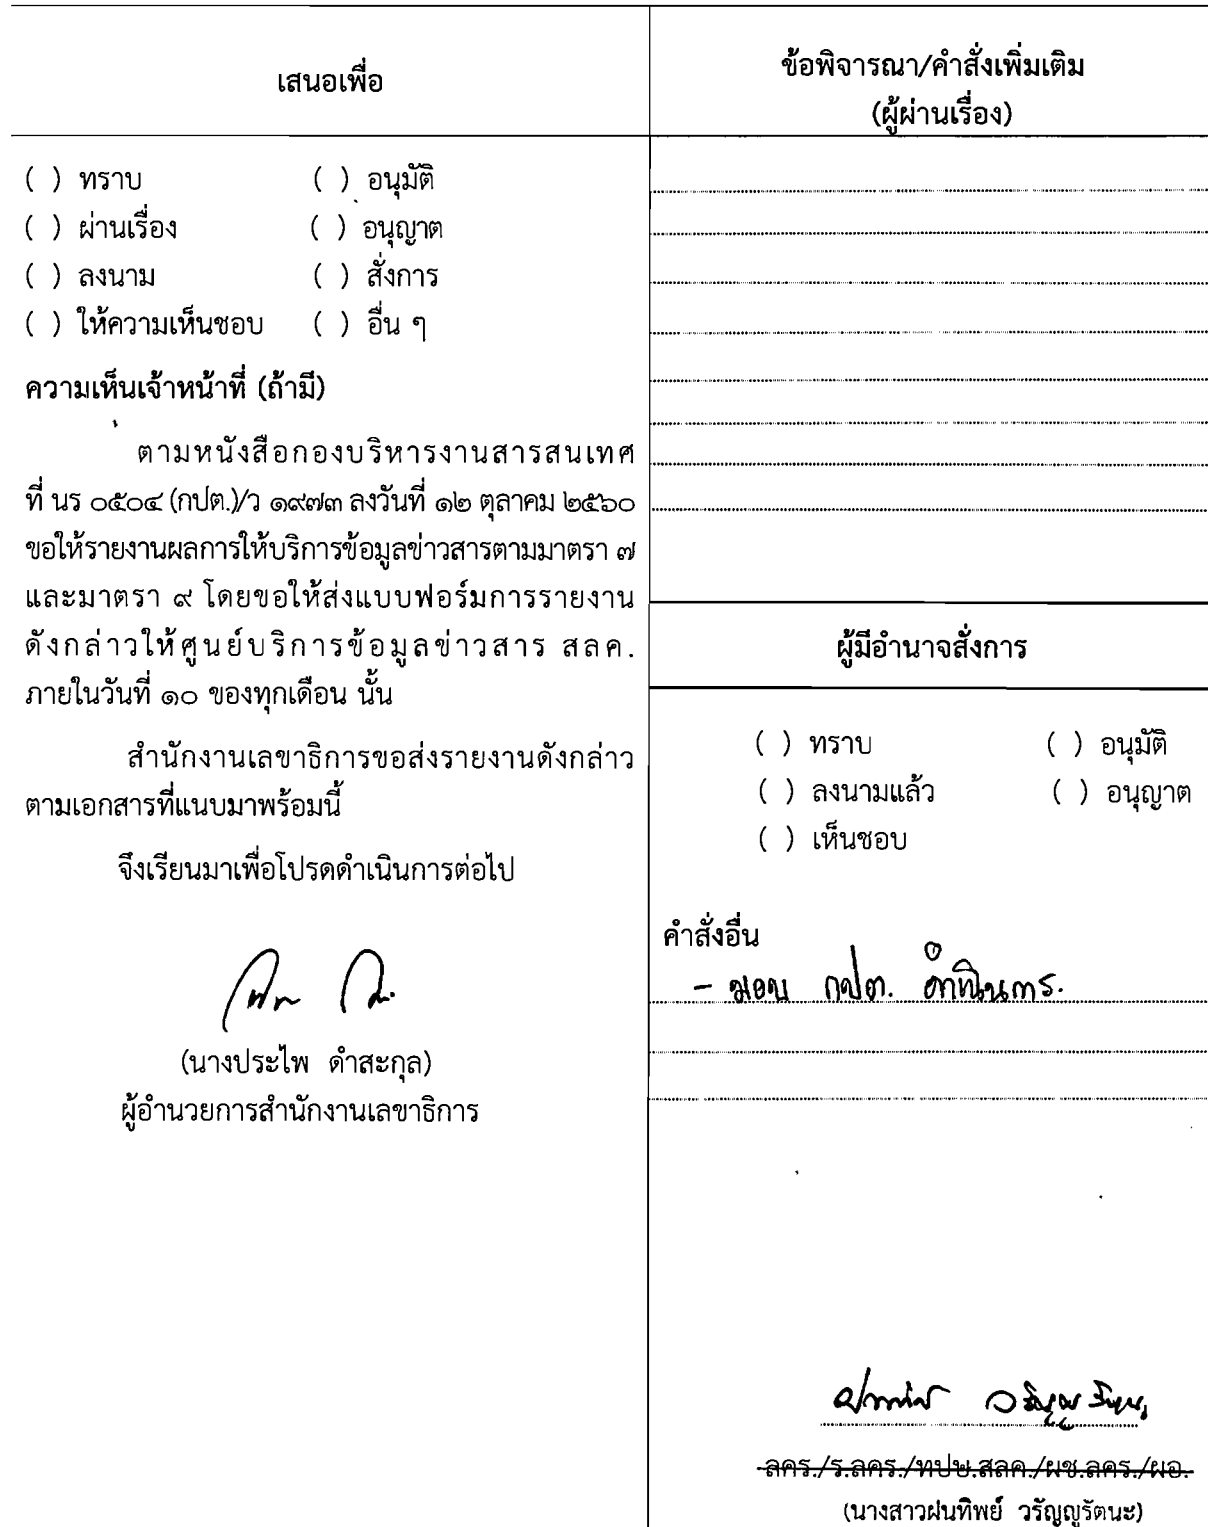 เสนอเพื่อ
( ) ทราบ ( ) อนุมัติ
( ) ผ่านเรื่อง ( ) อนุญาต
( ) ลงนาม ( ) สั่งการ
( ) ให้ความเห็นชอบ ( ) อื่น ๆ
ความเห็นเจ้าหน้าที่ (ถ้ามี)
ตามหนังสือกองบริหารงานสารสนเทศ
ที่ นร ๐๕๐๔ (กปต.)/ว ๑๙๗๓ ลงวันที่ ๑๒ ตุลาคม ๒๕๖๐
ขอให้รายงานผลการให้บริการข้อมูลข่าวสารตามมาตรา ๗
และมาตรา ๙ โดยขอให้ส่งแบบฟอร์มการรายงาน
ดังกล่าวให้ศูนย์บริการข้อมูลข่าวสาร สลค.
ภายในวันที่ ๑๐ ของทุกเดือน นั้น
สำนักงานเลขาธิการขอส่งรายงานดังกล่าว
ตามเอกสารที่แนบมาพร้อมนี้
จึงเรียนมาเพื่อโปรดดำเนินการต่อไป
(นางประไพ ดำสะกุล)
ผู้อำนวยการสำนักงานเลขาธิการ
ข้อพิจารณา/คำสั่งเพิ่มเติม
(ผู้ผ่านเรื่อง)
ผู้มีอำนาจสั่งการ
( ) ทราบ ( ) อนุมัติ
( ) ลงนามแล้ว ( ) อนุญาต
( ) เห็นชอบ
คำสั่งอื่น
- มอบ กปต. ดำเนินการ.
ฝนทิพย์ วรัญญูรัตนะ
ลคร./ร.ลคร./ทปษ.สลค./ผช.ลคร./ผอ.
(นางสาวฝนทิพย์ วรัญญูรัตนะ)